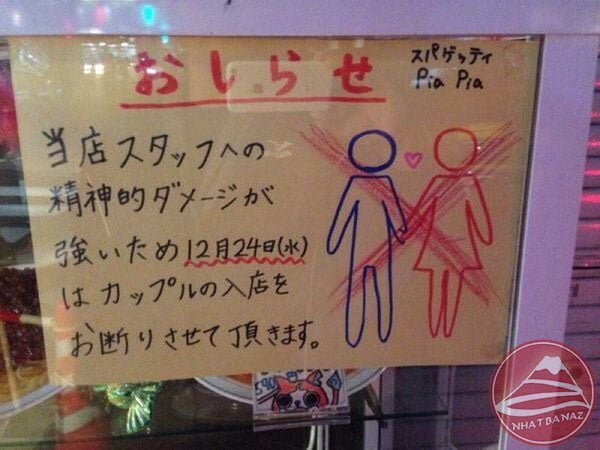 おしらせ
スパゲッティ
Pia Pia
当店スタッフへの
精神的ダメージが
強いため12月24日(水)
はカップルの入店を
お断りさせて頂きます。
NHATBANAZ